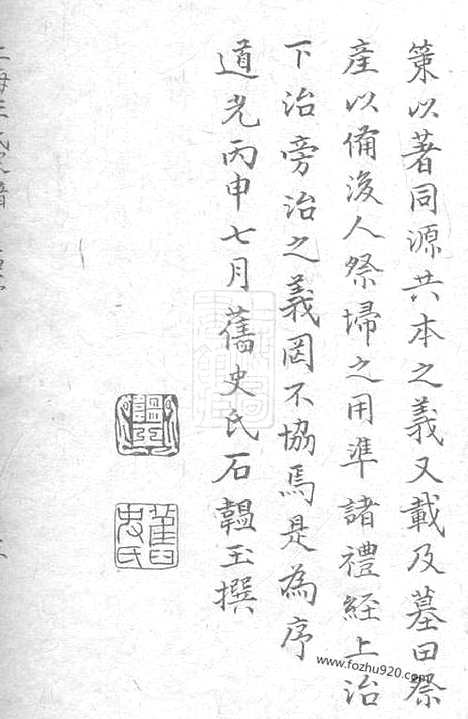 策以著同源共本之義又載及墓田祭
産以備後人祭埽之用準諸禮經上治
下治旁治之義罔不協焉是為序
道光丙申七月舊史氏石韞玉撰
舊史氏
www.fozhu920.com